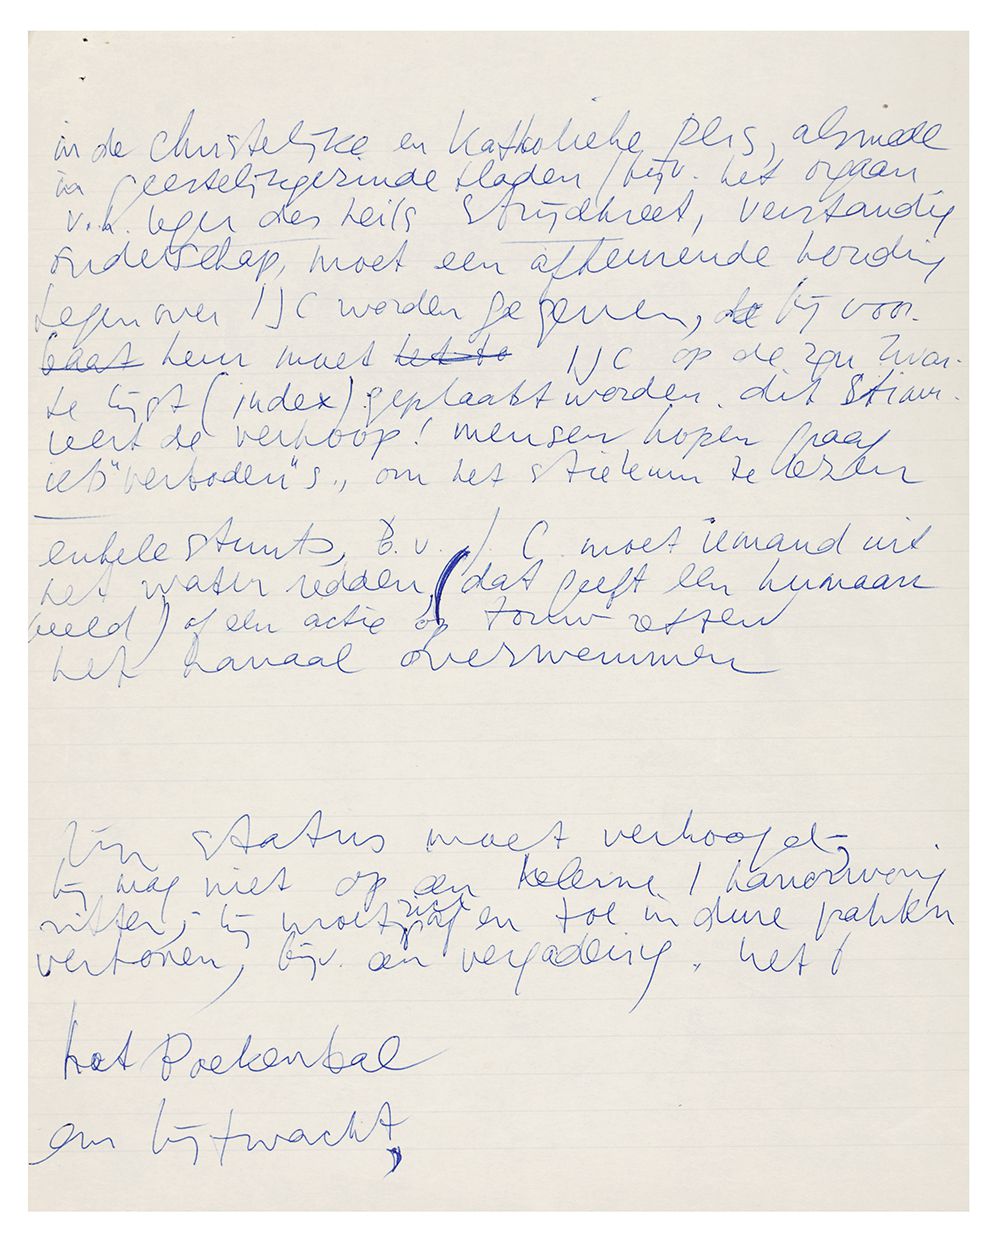 in de christelijke en Katholieke pers, alsmede
in geestelijkgezinde bladen (bijv. het orgaan
v.h. leger des heils Strijdkreet, verstandig
ouderschap, moet een afkeurende houding
tegenover IJC worden gegeven, de bij voor-
baat heen moet het to IJC op de zgn zwar-
te lijst (index) geplaatst worden. dit stimu-
leert de verkoop! mensen kopen graag
iets "verboden"s., om het stiekum te lezen
enkele stunts, B.v. IJ C. moet iemand uit
het water redden, (dat geeft een humaan
beeld) of een actie op touw zetten
het kanaal overzwemmen
Zijn status moet verhoogd,
hij mag niet op een kleine 1 kamerwoning
zitten, hij moet zich en toe in dure pakken
vertonen, bijv. een vergadering. het
het Boekenbal
een lijfwacht,